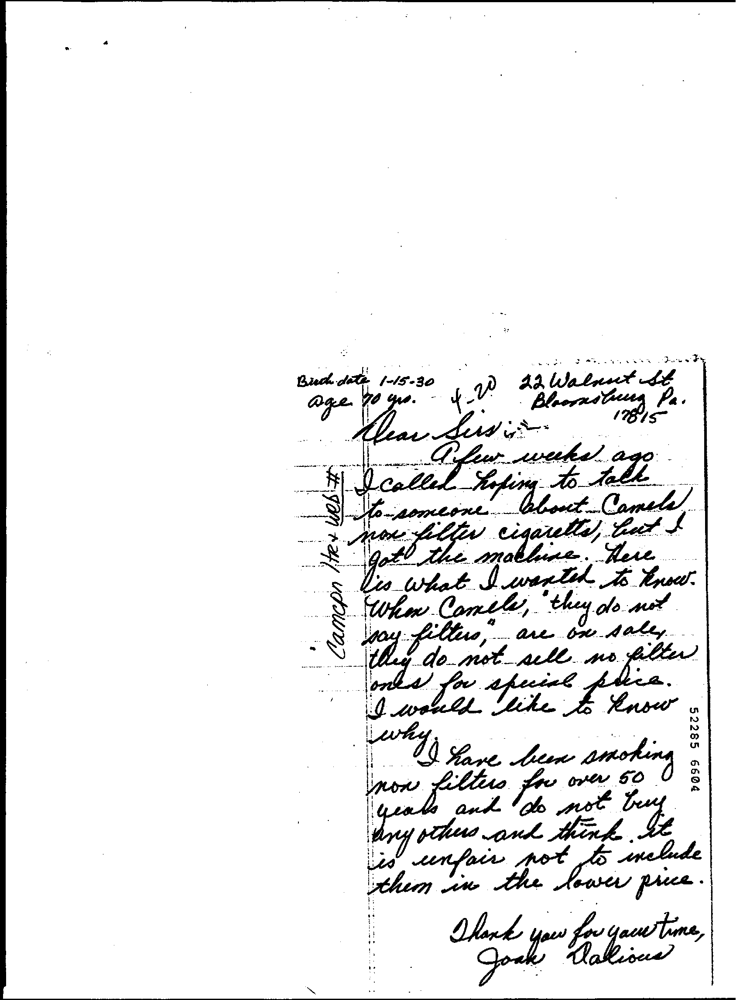 Birth date 1-15-30
age 70 yrs.
4-20
22 Walnut St
Bloomsburg Pa.
17815
Dear Sirs:
A few weeks ago
I called hoping to talk
to someone about Camels
non filter cigaretts, but I
got the machine. Here
is what I wanted to know.
When Camels, "they do not
say filters," are on sale,
they do not sell no filter
ones for special price.
I would like to know
why.
I have been smoking
non filters for over 50
years and do not buy
any others and think it
is unfair not to include
them in the lower price.
Thank you for your time,
Joan Dalious
Camcpn ltr + web #
52285 6604